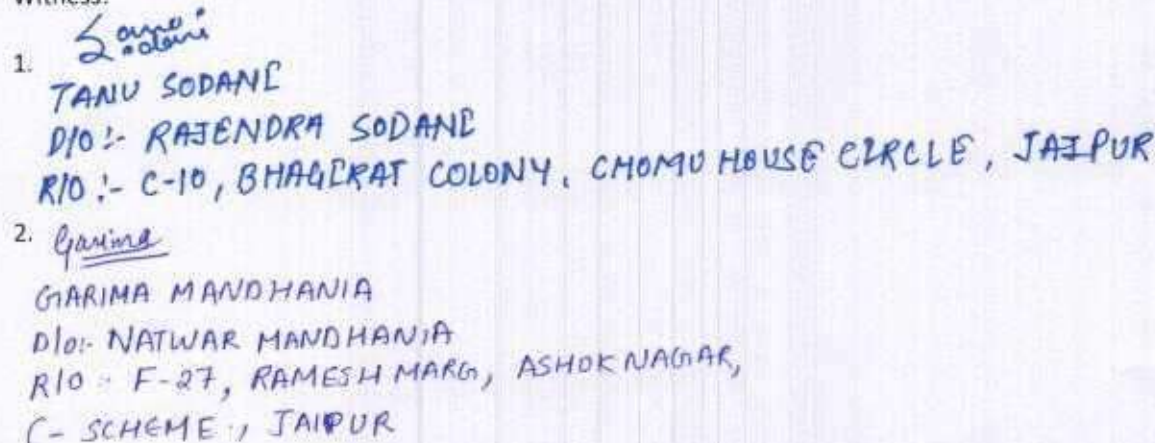 Witness:
1.
TANU SODANI
D/O :- RAJENDRA SODANI
R/O :- C-10, BHAGIRAT COLONY, CHOMU HOUSE CIRCLE, JAIPUR
2. Garima
GARIMA MANDHANIA
D/O:- NATWAR MANDHANIA
R/O :- F-27, RAMESH MARG, ASHOK NAGAR,
C- SCHEME, JAIPUR